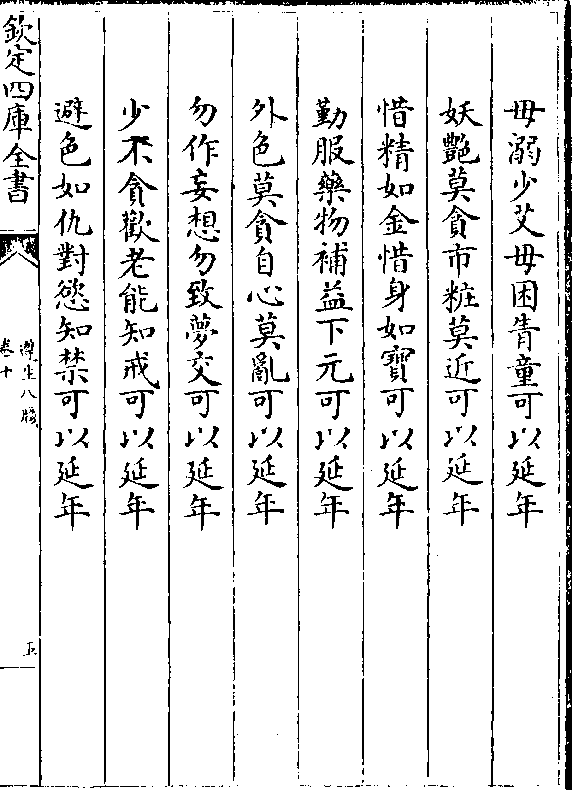 毋溺少艾毋困青童可以延年
妖艷莫貪市粧莫近可以延年
惜精如金惜身如寶可以延年
勤服藥物補益下元可以延年
外色莫貪自心莫亂可以延年
勿作妄想勿致夢交可以延年
少不貪歡老能知戒可以延年
避色如仇對慾知禁可以延年
欽定四庫全書
遵生八牋
卷十
五